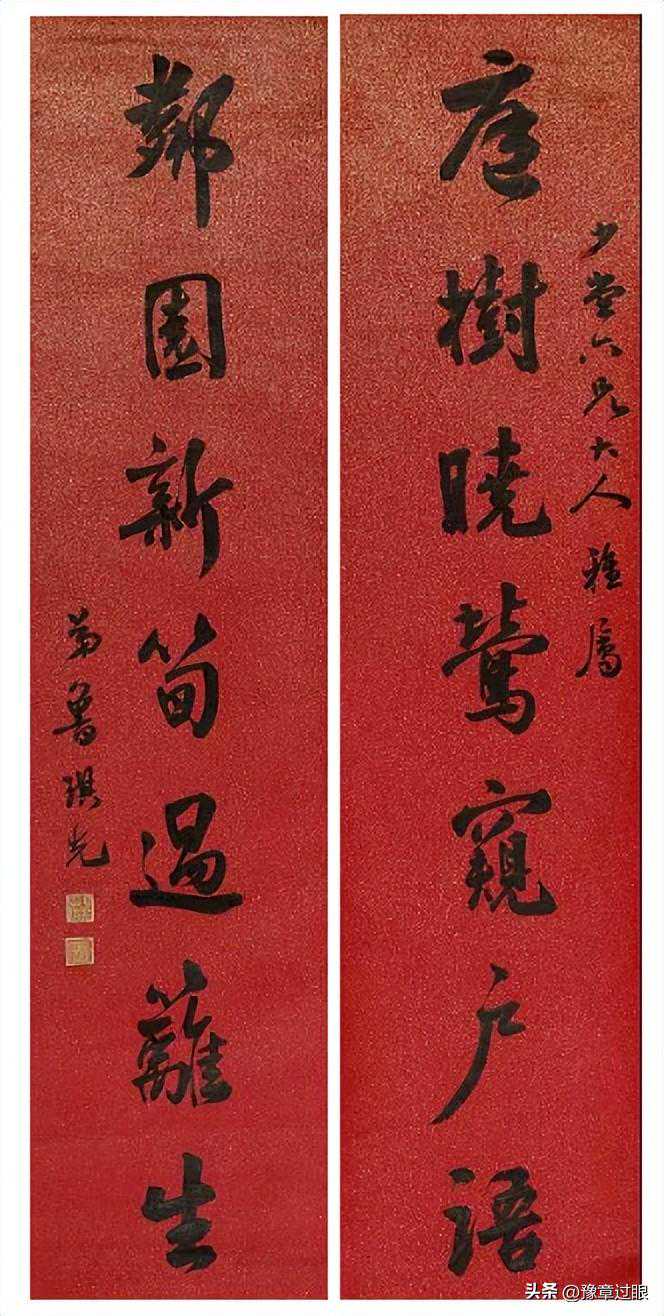 少堂六兄大人雅屬
庭樹曉鶯窺戶語
鄰園新筍過蘺生
弟魯琪光
头条 @豫章过眼